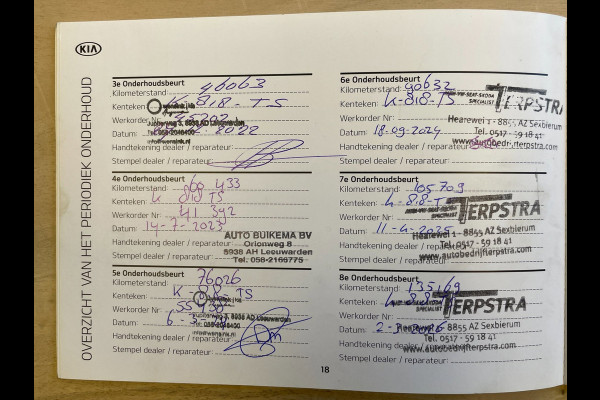 KIA
OVERZICHT VAN HET PERIODIEK ONDERHOUD
3e Onderhoudsbeurt
Kilometerstand: 46063
Kenteken: K-818-TS
Werkorder Nr:
Datum: 2022
Handtekening dealer / reparateur:
Stempel dealer / reparateur:
4e Onderhoudsbeurt
Kilometerstand: 60 433
Kenteken: K 818 TS
Werkorder Nr: 41 392
Datum: 14-7-2023
Handtekening dealer / reparateur:
Stempel dealer / reparateur:
AUTO BUIKEMA BV
Orionweg 8
8938 AH Leeuwarden
Tel: 058-2166775
5e Onderhoudsbeurt
Kilometerstand: 76026
Kenteken: K-818-TS
Werkorder Nr:
Datum:
Handtekening dealer / reparateur:
Stempel dealer / reparateur:
6e Onderhoudsbeurt
Kilometerstand: 90632
Kenteken: K-818-TS
Werkorder Nr:
Datum: 18-09-2024
Handtekening dealer / reparateur:
Stempel dealer / reparateur:
VW-SEAT-SKODA
SPECIALIST
TERPSTRA
Hearewei 1 - 8855 AZ Sexbierum
Tel. 0517 - 59 18 41
www.autobedrijfterpstra.com
7e Onderhoudsbeurt
Kilometerstand: 105709
Kenteken:
Werkorder Nr:
Datum: 11-4-2025
Handtekening dealer / reparateur:
Stempel dealer / reparateur:
SPECIALIST
TERPSTRA
Hearewei 1 - 8855 AZ Sexbierum
Tel. 0517 - 59 18 41
www.autobedrijfterpstra.com
8e Onderhoudsbeurt
Kilometerstand: 135169
Kenteken:
Werkorder Nr:
Datum:
Handtekening dealer / reparateur:
Stempel dealer / reparateur:
SPECIALIST
TERPSTRA
Hearewei 1 - 8855 AZ Sexbierum
Tel. 0517 - 59 18 41
www.autobedrijfterpstra.com
18